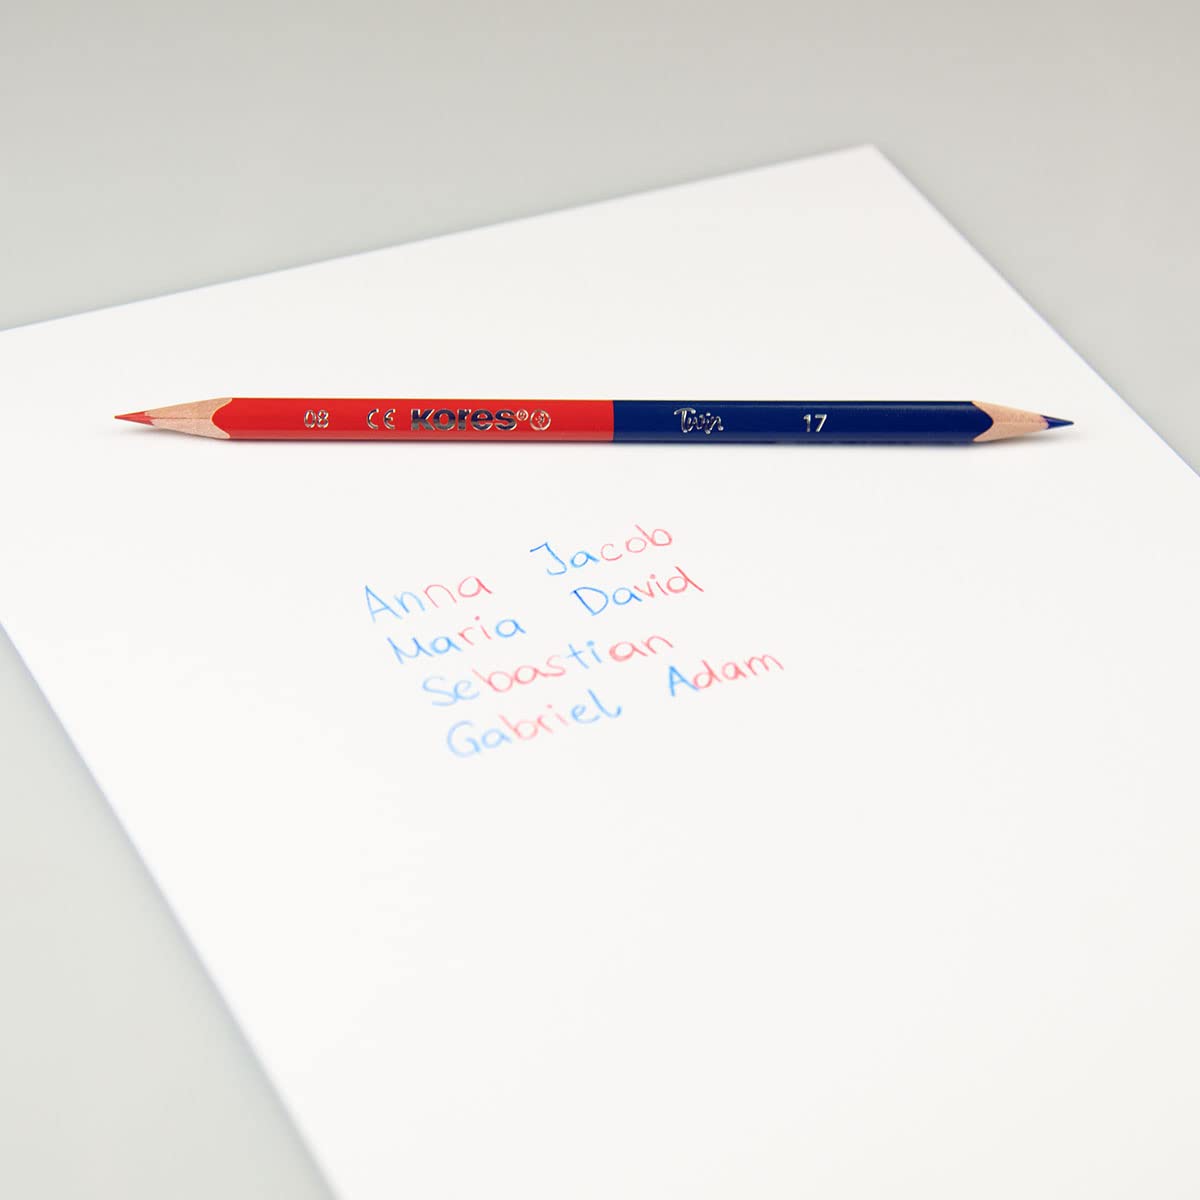 08 CE Kores® Twin 17
Anna Jacob
Maria David
Sebastian
Gabriel Adam